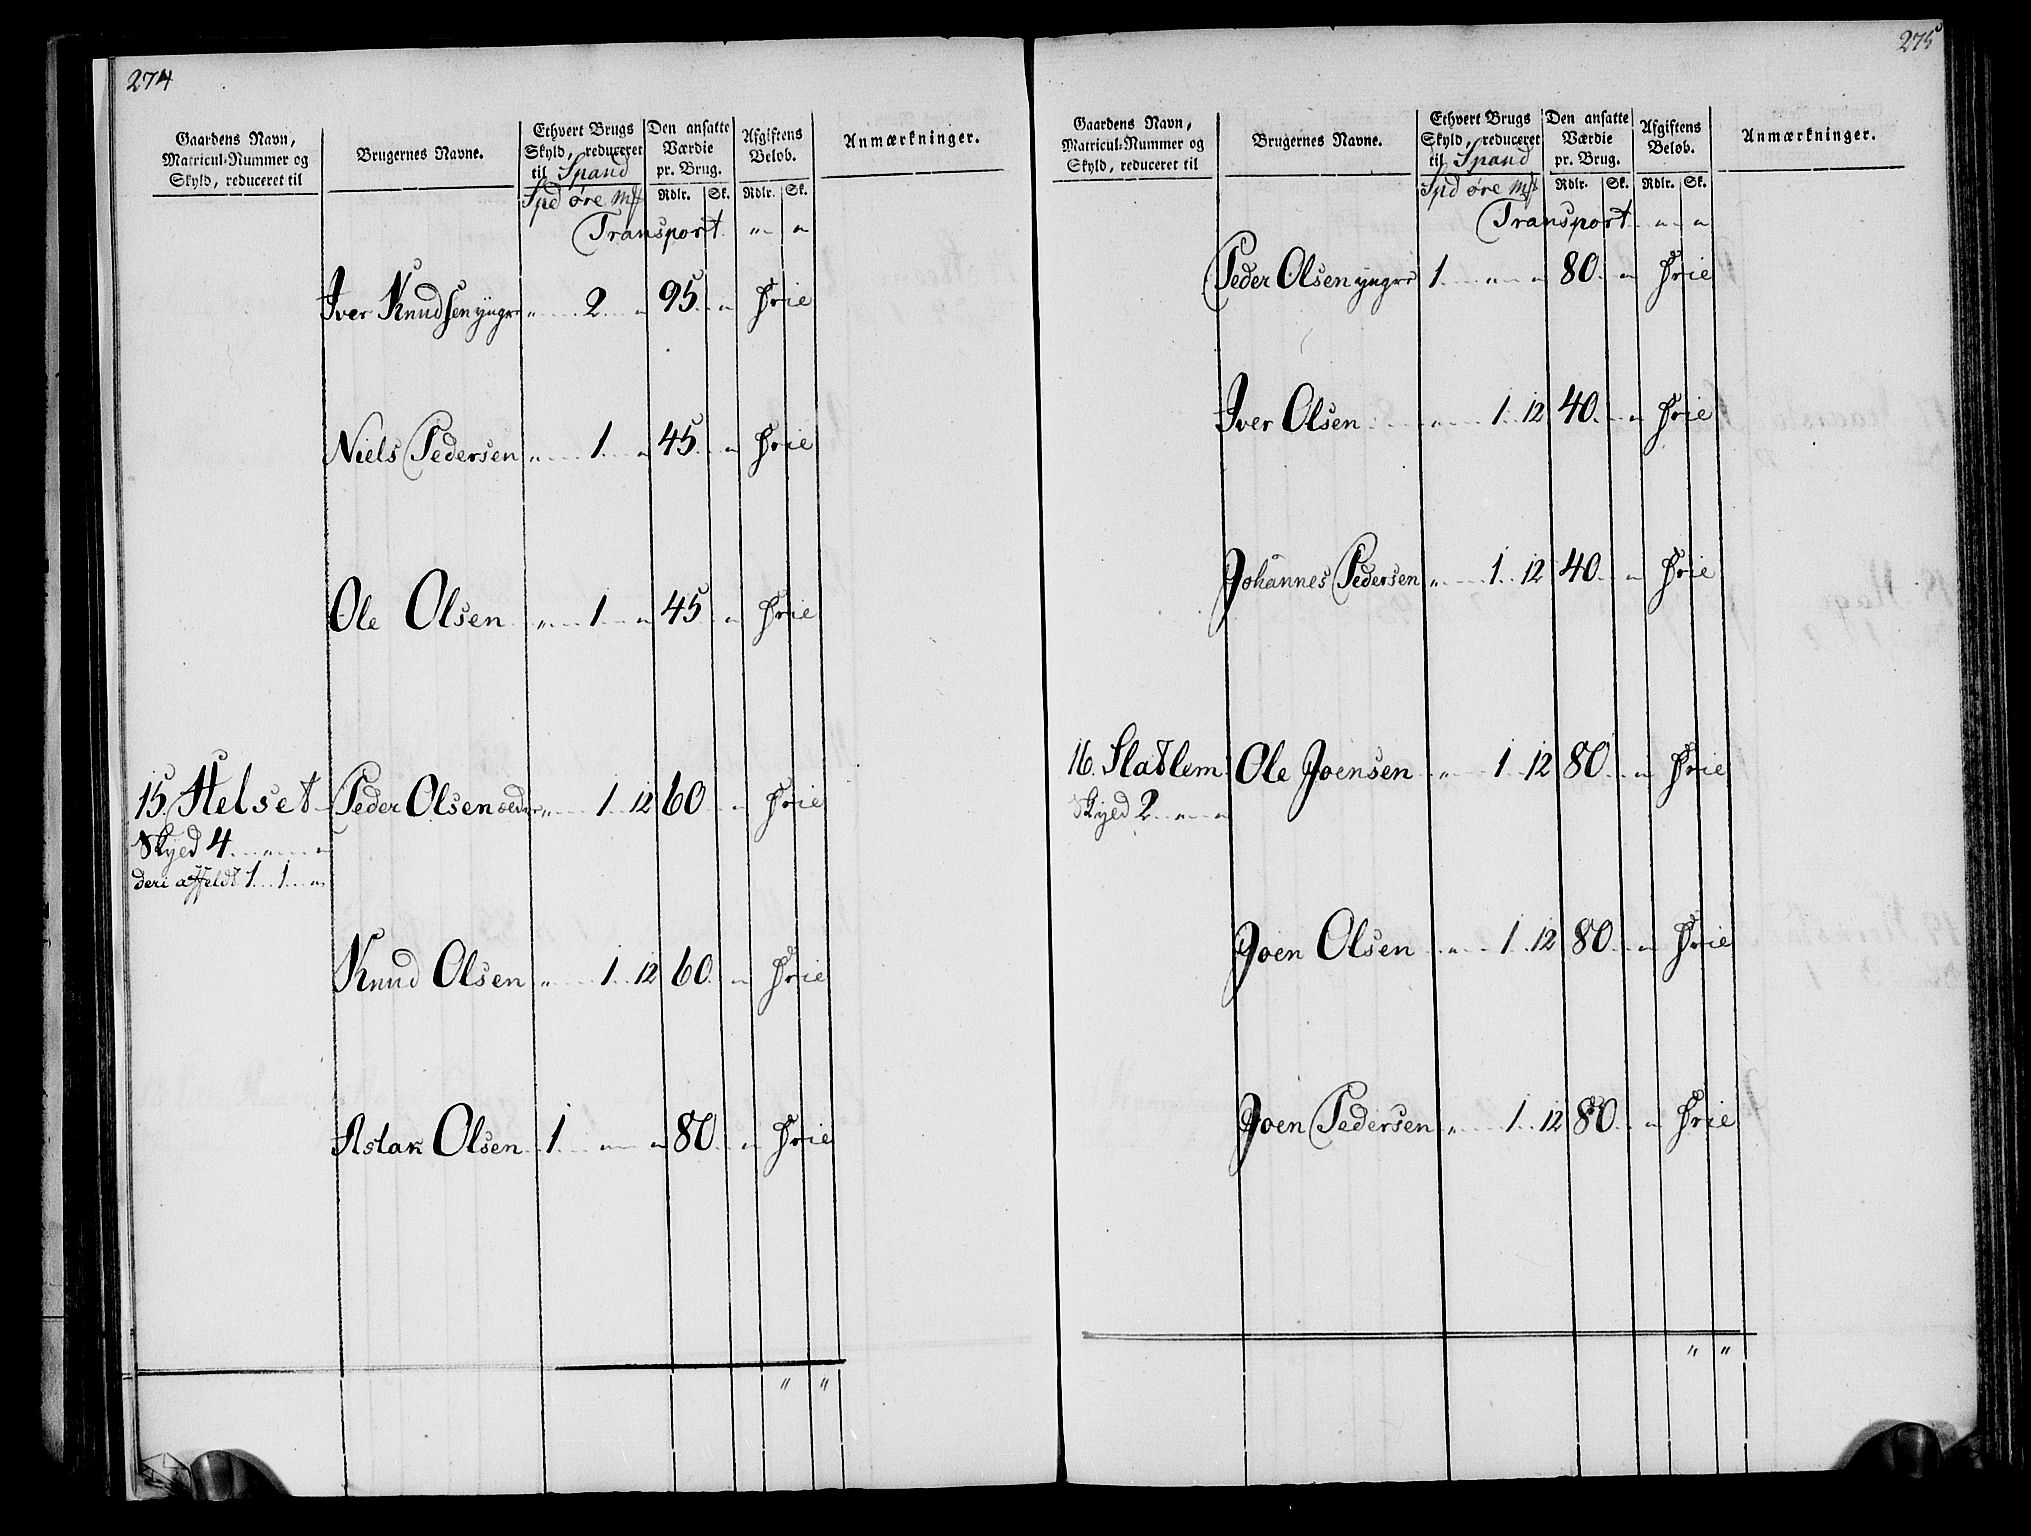 274
Gaardens Navn, Matricul-Nummer og Skyld, reduceret til
Brugernes Navne.
Ethvert Brugs Skyld, reduceret til Spand
Spd øre mʄ
Den ansatte Værdie pr. Brug.
Rdlr. Sk.
Afgiftens Beløb.
Rdlr. Sk.
Anmærkninger.
Transport " "
Iver Knudsen yngre " 2 " 95 " Frie
Niels Pedersen " 1 " 45 " Frie
Ole Olsen " 1 " 45 " Frie
15. Helset Peder Olsen ældre " 1 12 60 " Frie
Skyld 4 " "
deri affeldt 1 1 "
Knud Olsen " 1 12 60 " Frie
Aslak Olsen 1 " " 80 " Frie
" "
275
Gaardens Navn, Matricul-Nummer og Skyld, reduceret til
Brugernes Navne.
Ethvert Brugs Skyld, reduceret til Spand
Spd øre mʄ
Den ansatte Værdie pr. Brug.
Rdlr. Sk.
Afgiftens Beløb.
Rdlr. Sk.
Anmærkninger.
Transport " "
Peder Olsen yngre 1 " " 80 " Frie
Iver Olsen " 1 12 40 " Frie
Johannes Pedersen " 1 12 40 " Frie
16. Slatlem Ole Joensen " 1 12 80 " Frie
Skyld 2 " "
Joen Olsen " 1 12 80 " Frie
Joen Pedersen " 1 12 80 " Frie
" "